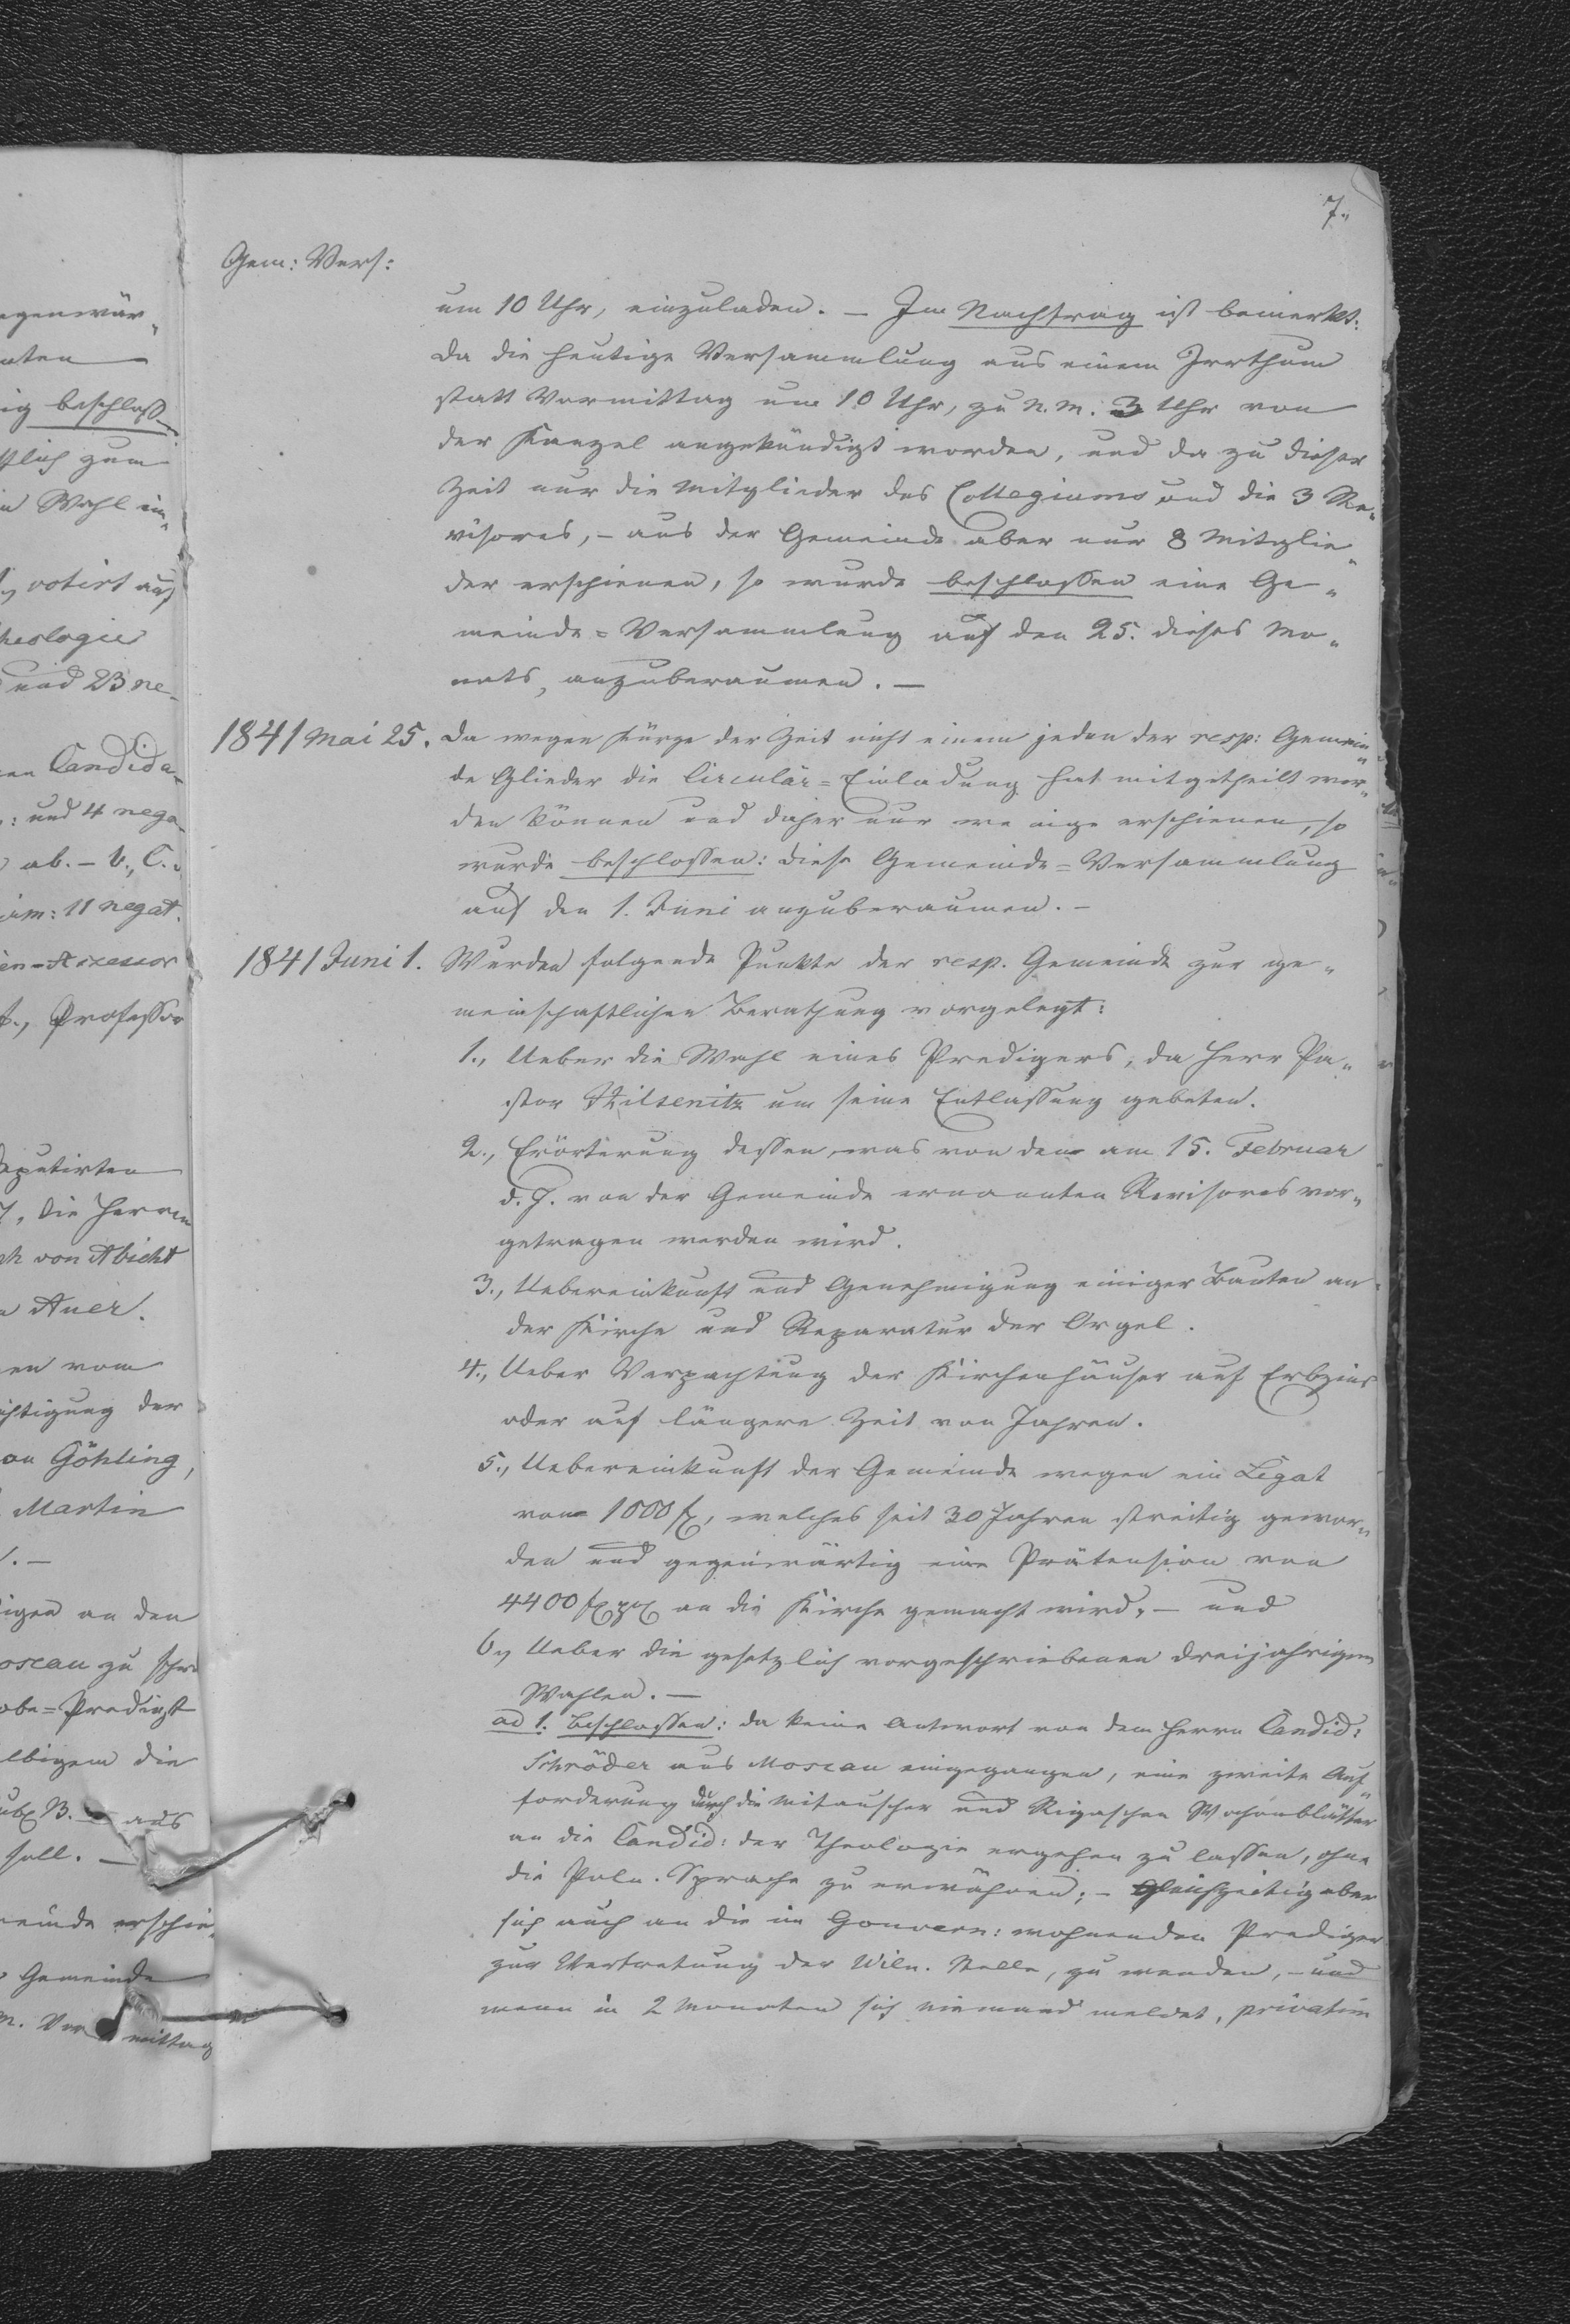 7.
Gem: Vers:
um 10 Uhr, einzuladen. — Im Nachtrag ist bemerkt:
da die heutige Versammlung aus einem Irrthum
statt Vormittag um 10 Uhr, zu N. M. 3 Uhr von
der Kanzel angekündigt worden, und da zu dieser
Zeit nur die Mitglieder des Collegiums und die 3 Re„
visores, – aus der Gemeinde aber nur 8 Mitglie„
der erschienen, so wurde beschlossen eine Ge„
meinde=Versammlung auf den 25. dieses Mo„
nats, anzuberaumen. —
1841 Mai 25. Da wegen Kürze der Zeit nicht einem jeden der resp: Gemein„
de Glieder die Circulär=Einladung hat mitgetheilt wer„
den können und daher nur wenige erschienen, so
wurde beschlossen: diese Gemeinde=Versammlung
auf den 1. Juni anzuberaumen. –
1841 Juni 1. Wurden folgende Punkte der resp. Gemeinde zur ge„
meinschaftlichen Berathung vorgelegt:
1., Ueber die Wahl eines Predigers, da Herr Pa„
stor um seine Entlassung gebeten.
2., Erörterung dessen, was von den am 15. Februar
d. J. von der Gemeinde ernannten Revisores vor„
getragen werden wird.
3., Uebereinkunft und Genehmigung einiger Bauten an
der Kirche und Reparatur der Orgel.
4., Ueber Verpachtung der Kirchenhäuser auf Erbzins
oder auf längere Zeit von Jahren.
5., Uebereinkunft der Gemeinde wegen ein Legat
von 1000 f, welches seit 30 Jahren streitig gewor„
den und gegenwärtig eine Prätension von
4400 an die Kirche gemacht wird, – und
6., Ueber die gesetzlich vorgeschriebenen dreijahrigen
Wahlen. —
ad 1. Beschlossen: da keine Antwort von dem Herrn Candid:
Schröder aus Moscau eingegangen, eine zweite Auf„
forderung durch die Mitauscher und Rigaschen Wochenblätter
an die Candid: der Theologie ergehen zu lassen, ohne
die Poln. Sprache zu erwähnen; – gleichzeitig aber
sich auch an die im Gouvern: wohnenden Prediger
zur Vertretung der Wiln. Stelle, zu wenden, – und
wenn in 2 Monaten sich niemand meldet, privatim